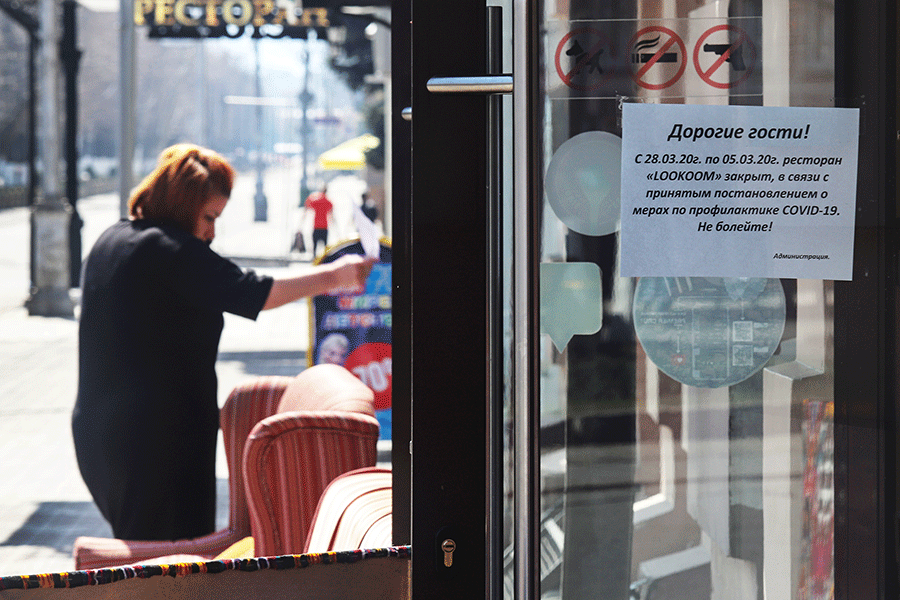 РЕСТОРАН
Дорогие гости!
С 28.03.20г. по 05.03.20г. ресторан
«LOOKOOM» закрыт, в связи с
принятым постановлением о
мерах по профилактике COVID-19.
Не болейте!
Администрация.
70%